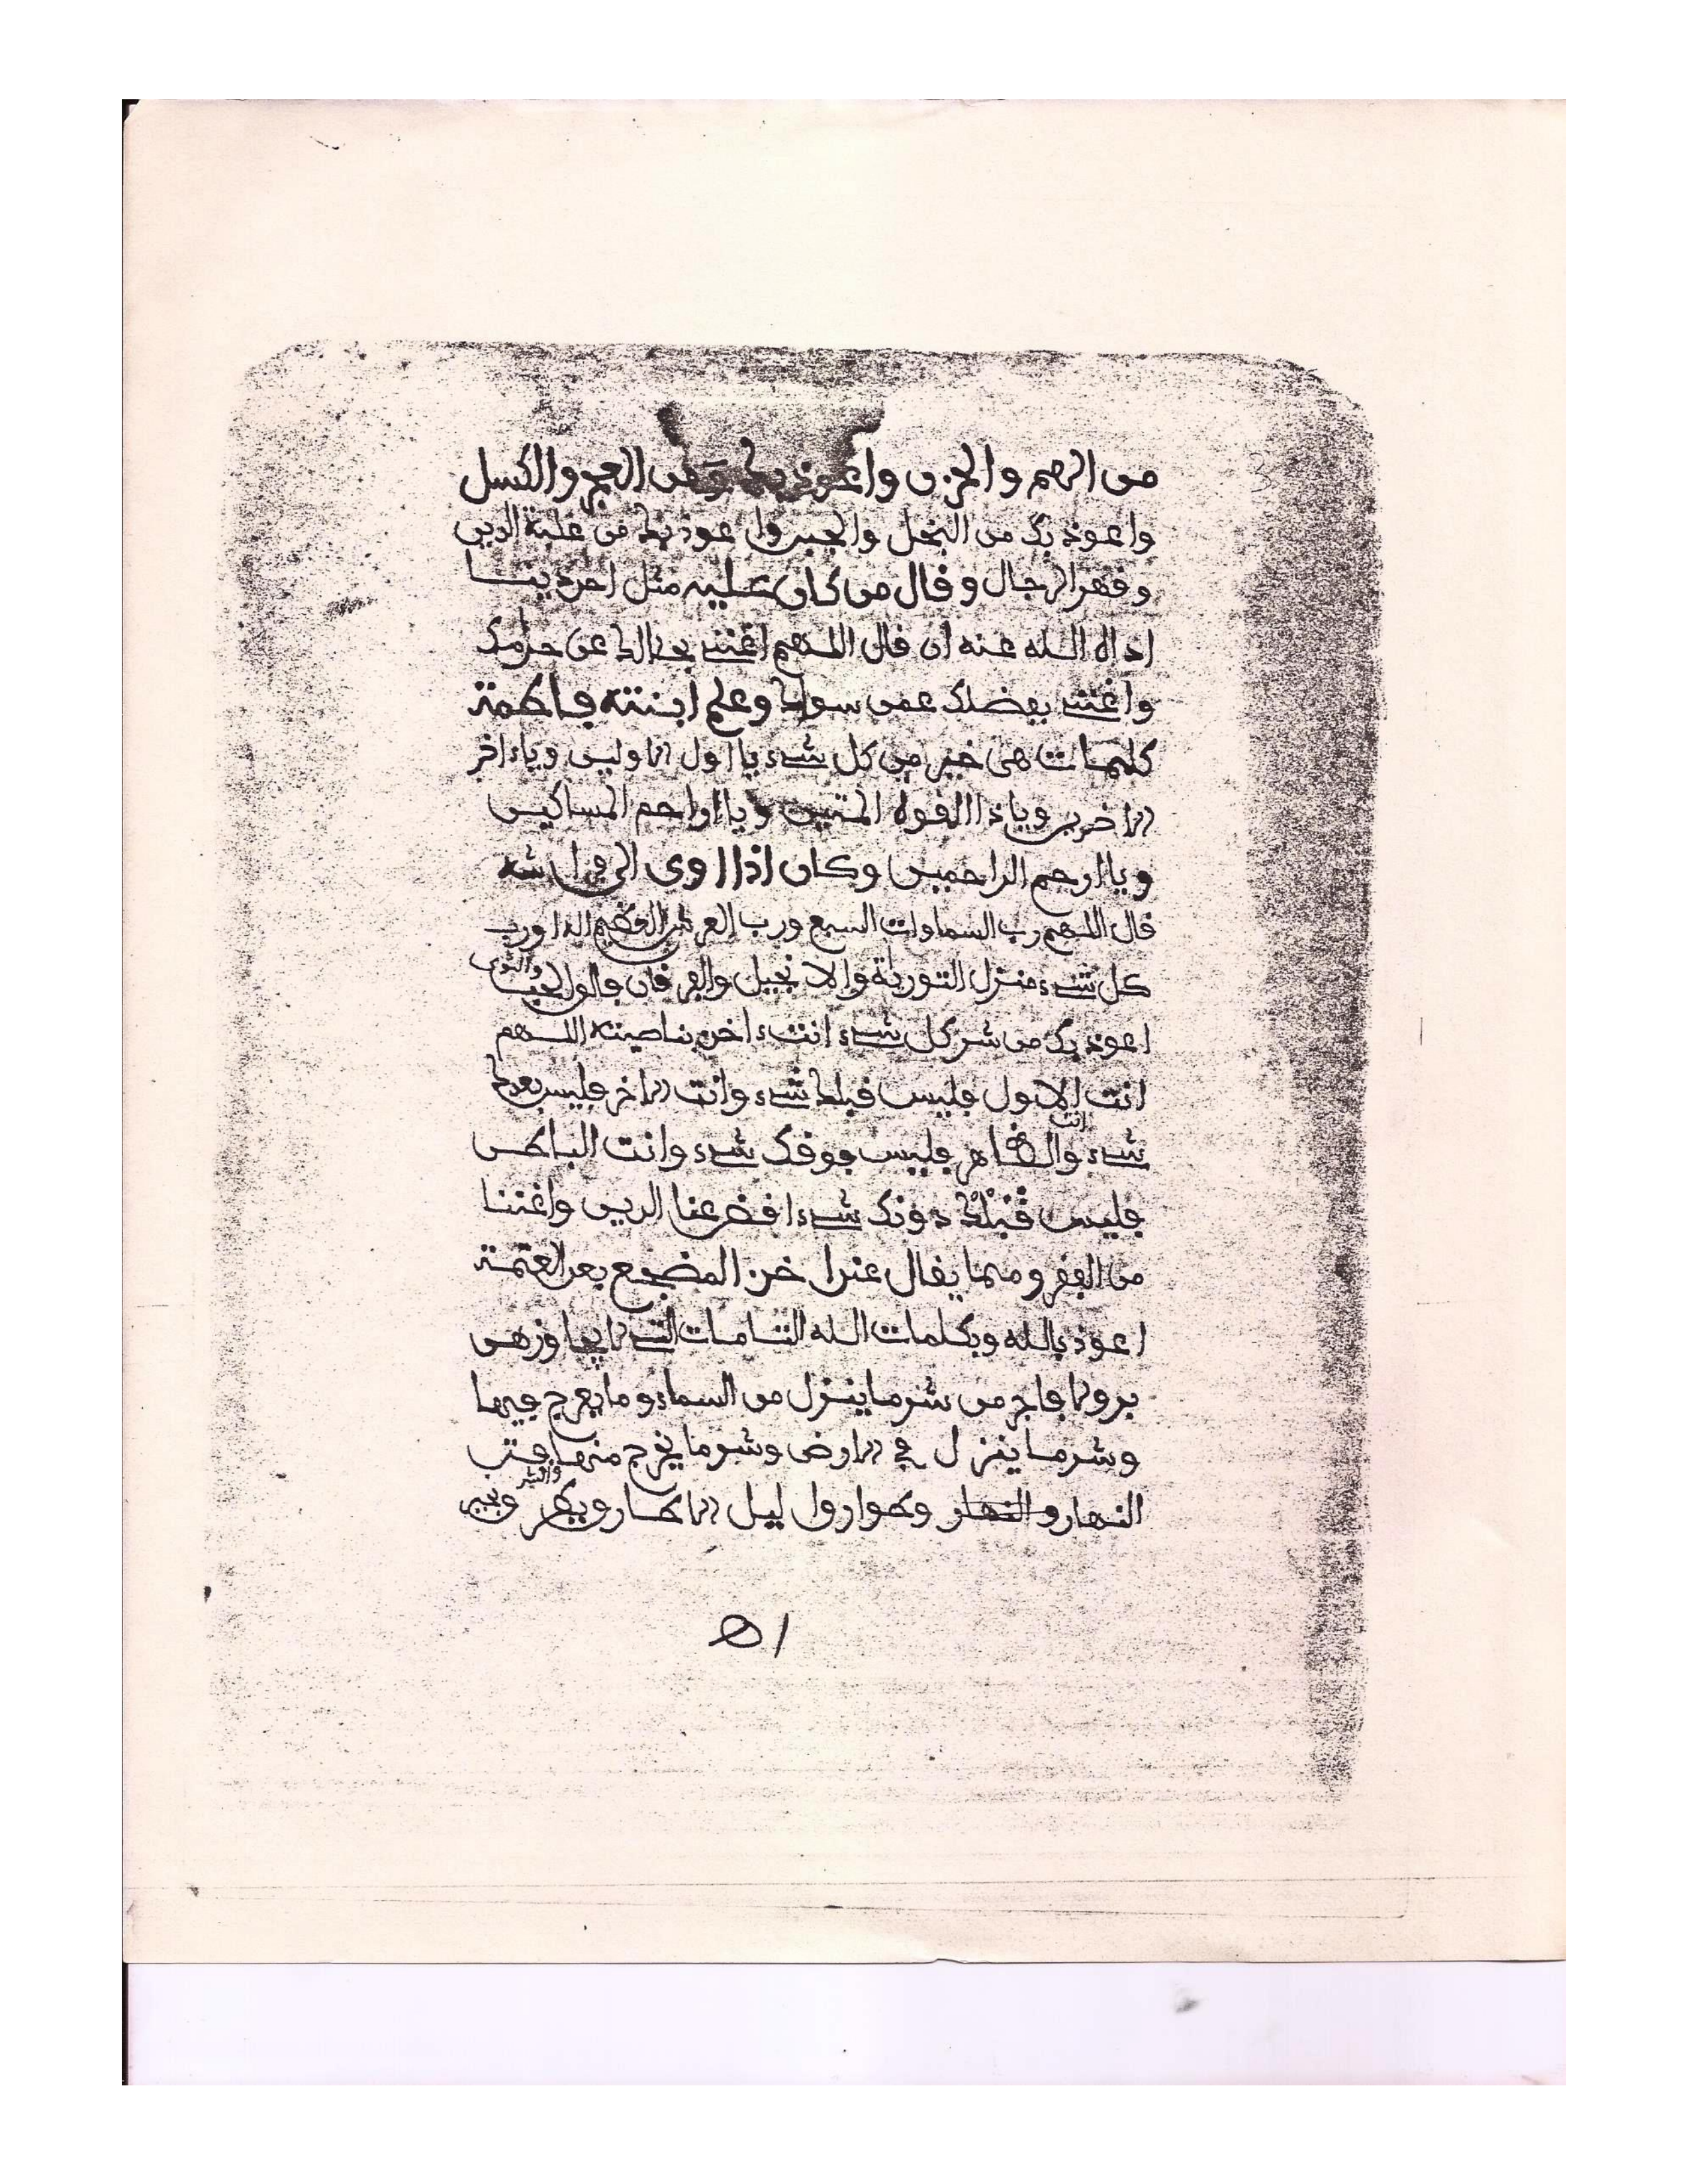 من الهم والحزن واعوذ بك من العجز والكسل
واعوذ بك من البخل والجبن واعوذ بك من غلبة الدين
وقهر الرجال وقال من كان عليه مثل احد دينا
اداه الله عنه ان قال اللهم اغننى بحلالك عن حرامك
واغننى بفضلك عمن سواك وعلم ابنته فاطمة
كلمات هى خير من كل شىء يا اول الاولين وياءاخر
الاخرين ويا ذا القوة المتين ويا اراحم المساكين
ويا ارحم الراحمين وكان اذا اوى الى فراشه
قال اللهم رب السماوات السبع ورب العرش العظيم ورب
كل شىء منزل التورية والانجيل والفرقان فالق الحب والنوى
اعوذ بك من شر كل شىء انت ءاخذ بناصيته اللهم
انت الاول فليس قبلك شىء وانت الاخر فليس بعدك
شىء وانت الظاهر فليس فوقك شىء وانت الباطن
فليس قبلك دونك شىء اقض عنا الدين واغننا
من الفقر ومما يقال عند اخذ المضجع بعد العتمة
اعوذ بالله وبكلمات الله التامات التى لا يجاوزهن
بر ولا فاجر من شر ما ينزل من السماء وما يعرج فيها
وشر ما ينزل فى الارض وشر ما يخرج منها فتن
النهار و النهار وطوارق ليل الا طارق يطرق بخير
اه